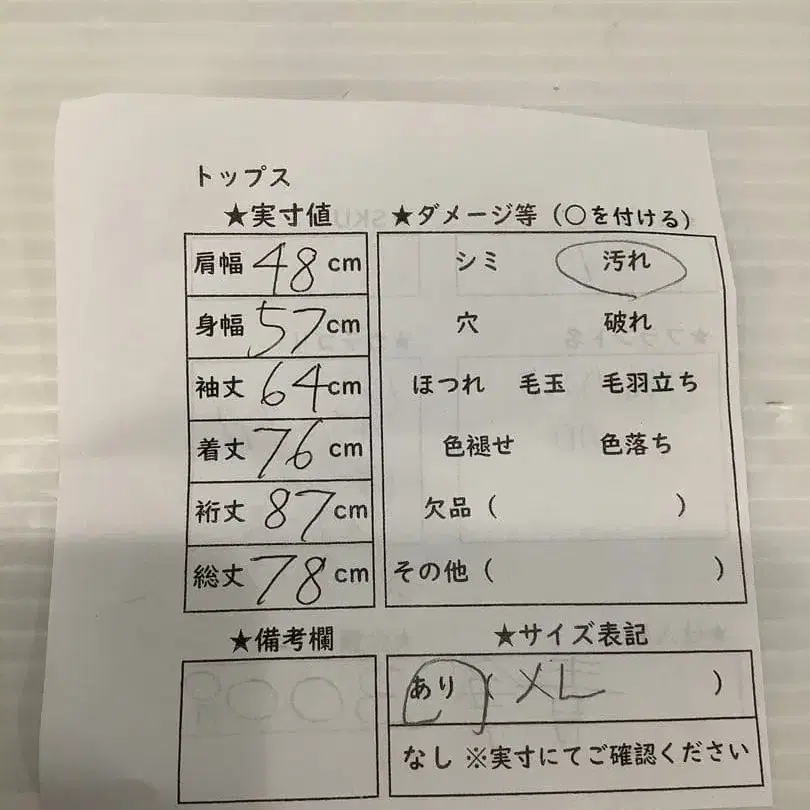 トップス
★実寸値
肩幅 48cm
身幅 57cm
袖丈 64cm
着丈 76cm
裄丈 87cm
総丈 78cm
★ダメージ等（○を付ける）
シミ 汚れ
穴 破れ
ほつれ 毛玉 毛羽立ち
色褪せ 色落ち
欠品（ ）
その他（ ）
★備考欄
★サイズ表記
あり（ XL ）
なし ※実寸にてご確認ください